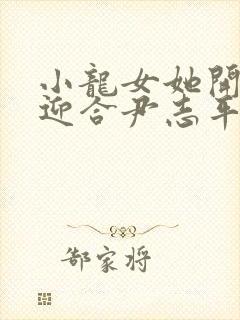 小龍女她開
迎合尹志平
郜家将